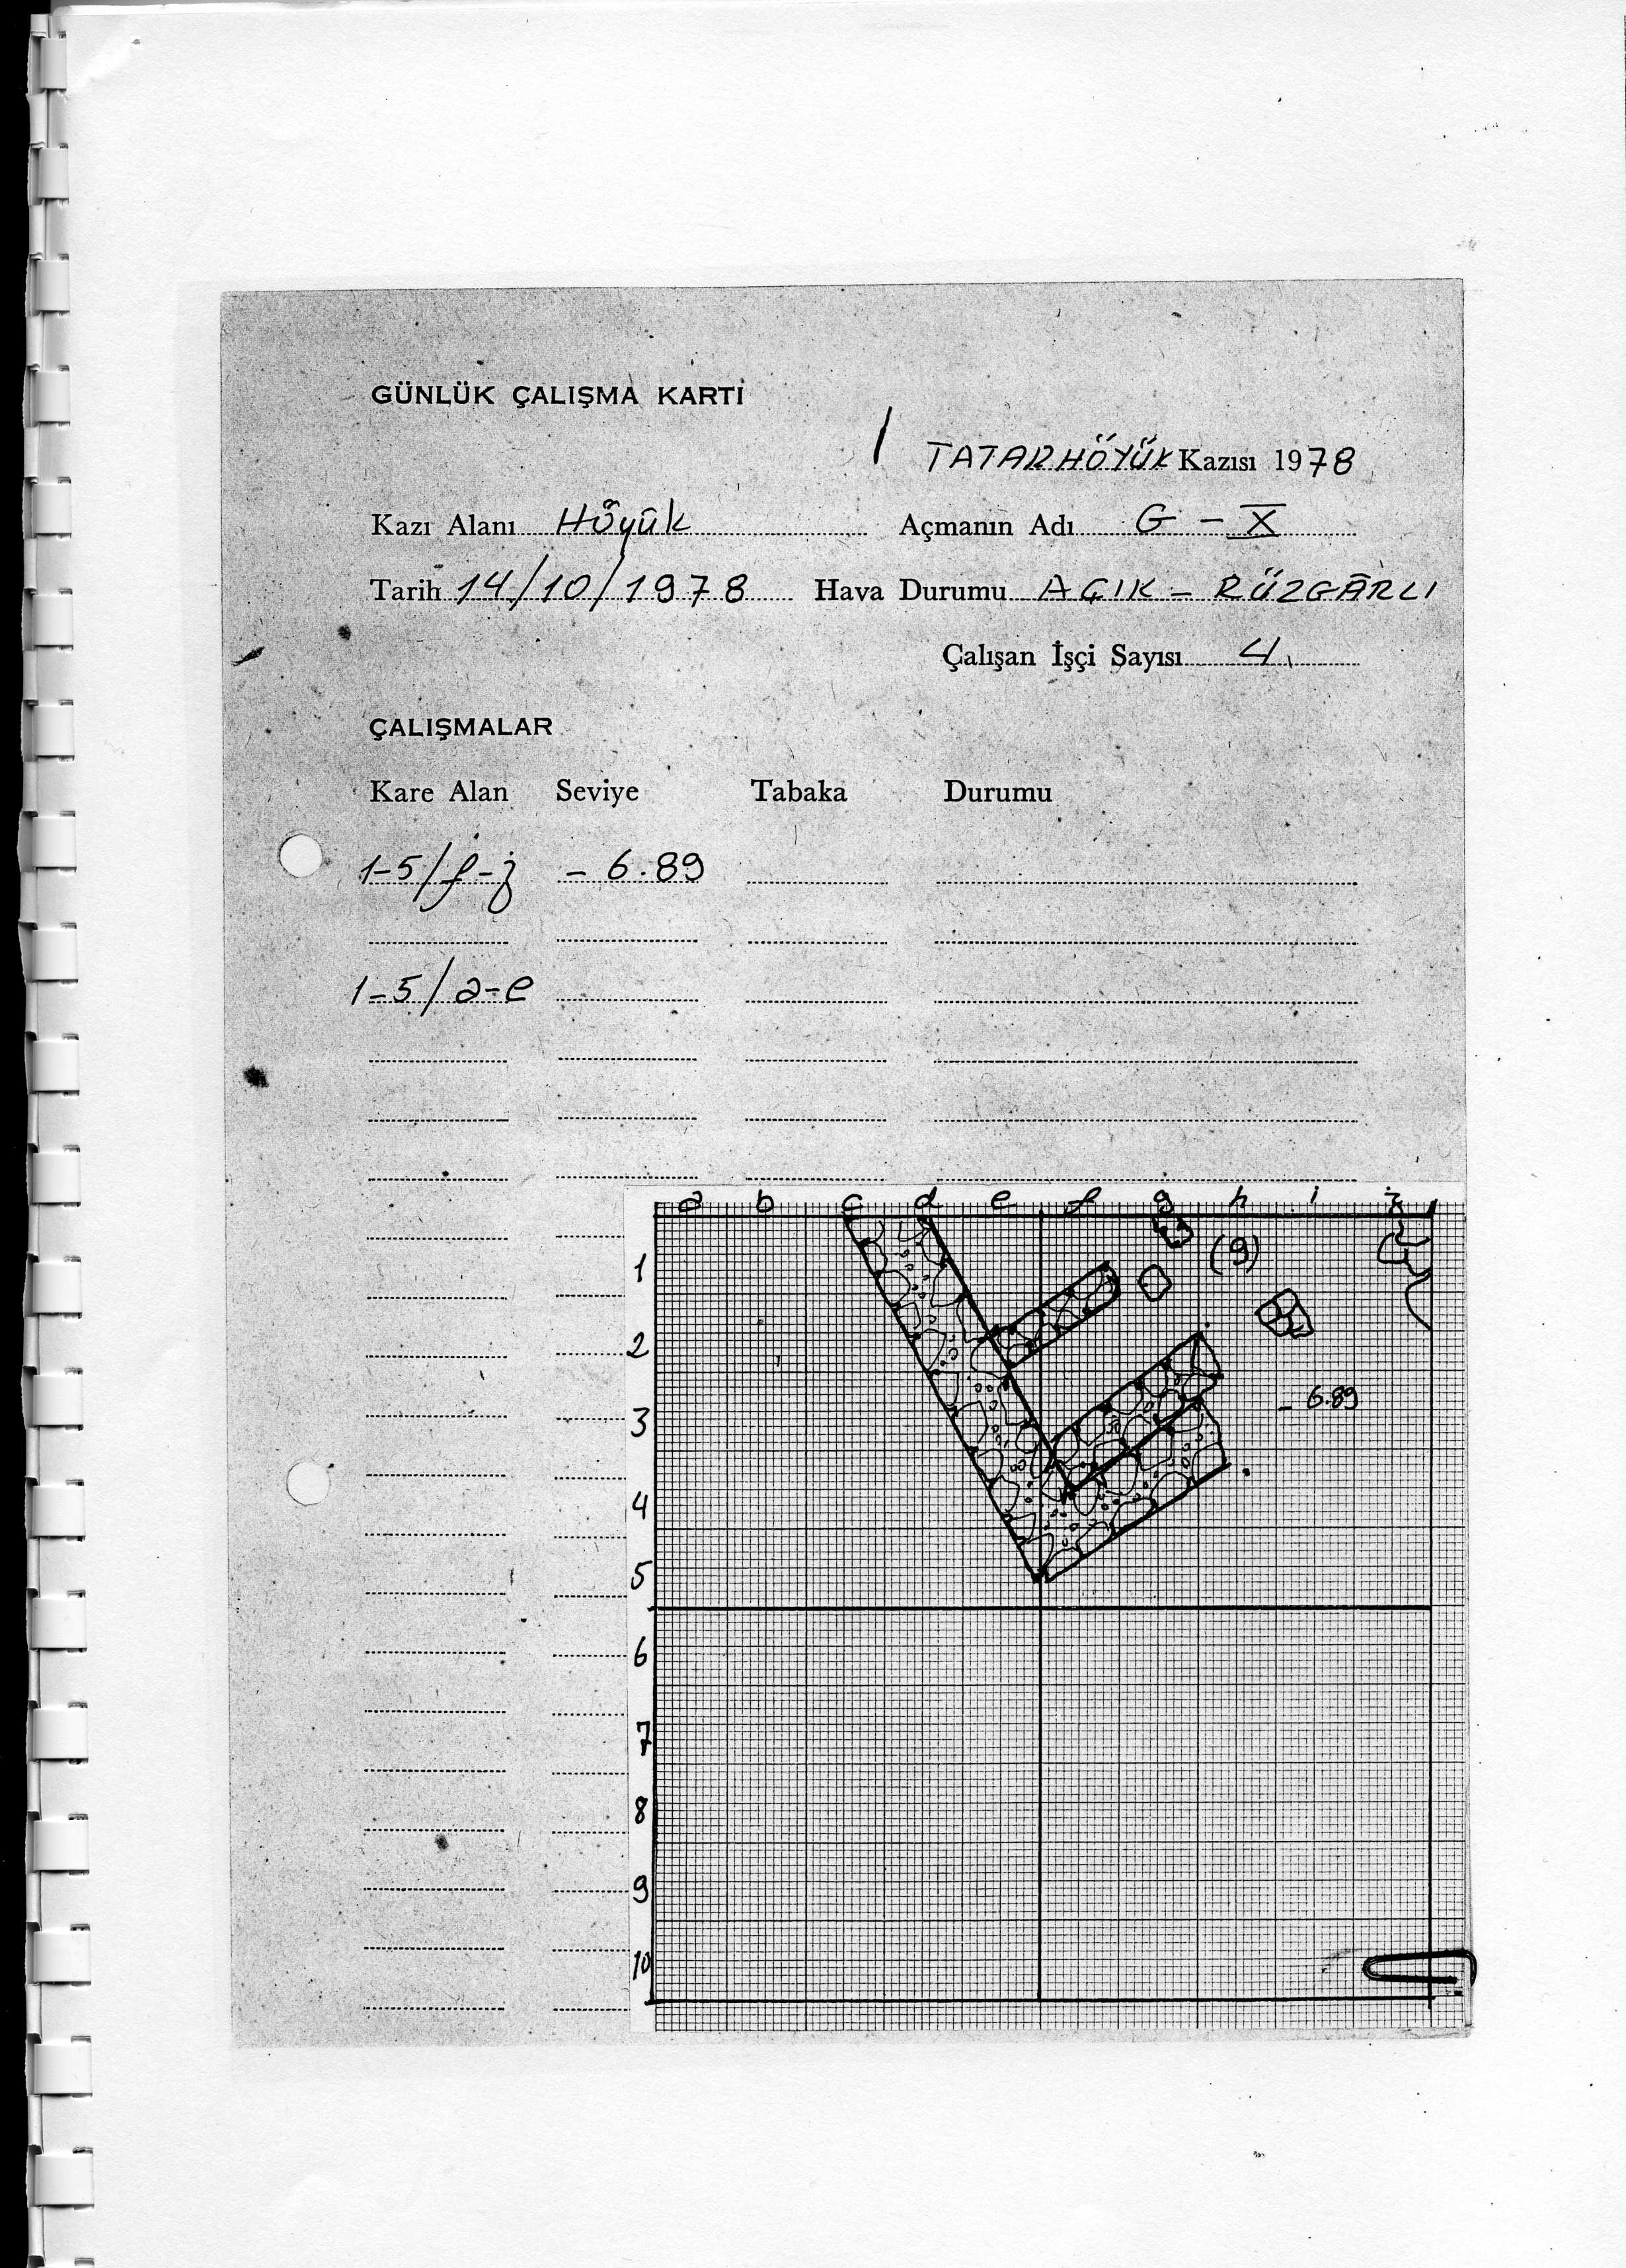 GÜNLÜK ÇALIŞMA KARTI
TATARHÖYÜK Kazısı 1978
Kazı Alanı Höyük Açmanın Adı G - X
Tarih 14/10/1978 Hava Durumu AÇIK - RÜZGÂRLI
Çalışan İşçi Sayısı 4
ÇALIŞMALAR
Kare Alan Seviye Tabaka Durumu
1-5/f-j - 6.89
1-5/a-e
a b c d e f g h i j
1
(9)
2
3 - 6.89
4
5
6
7
8
9
10